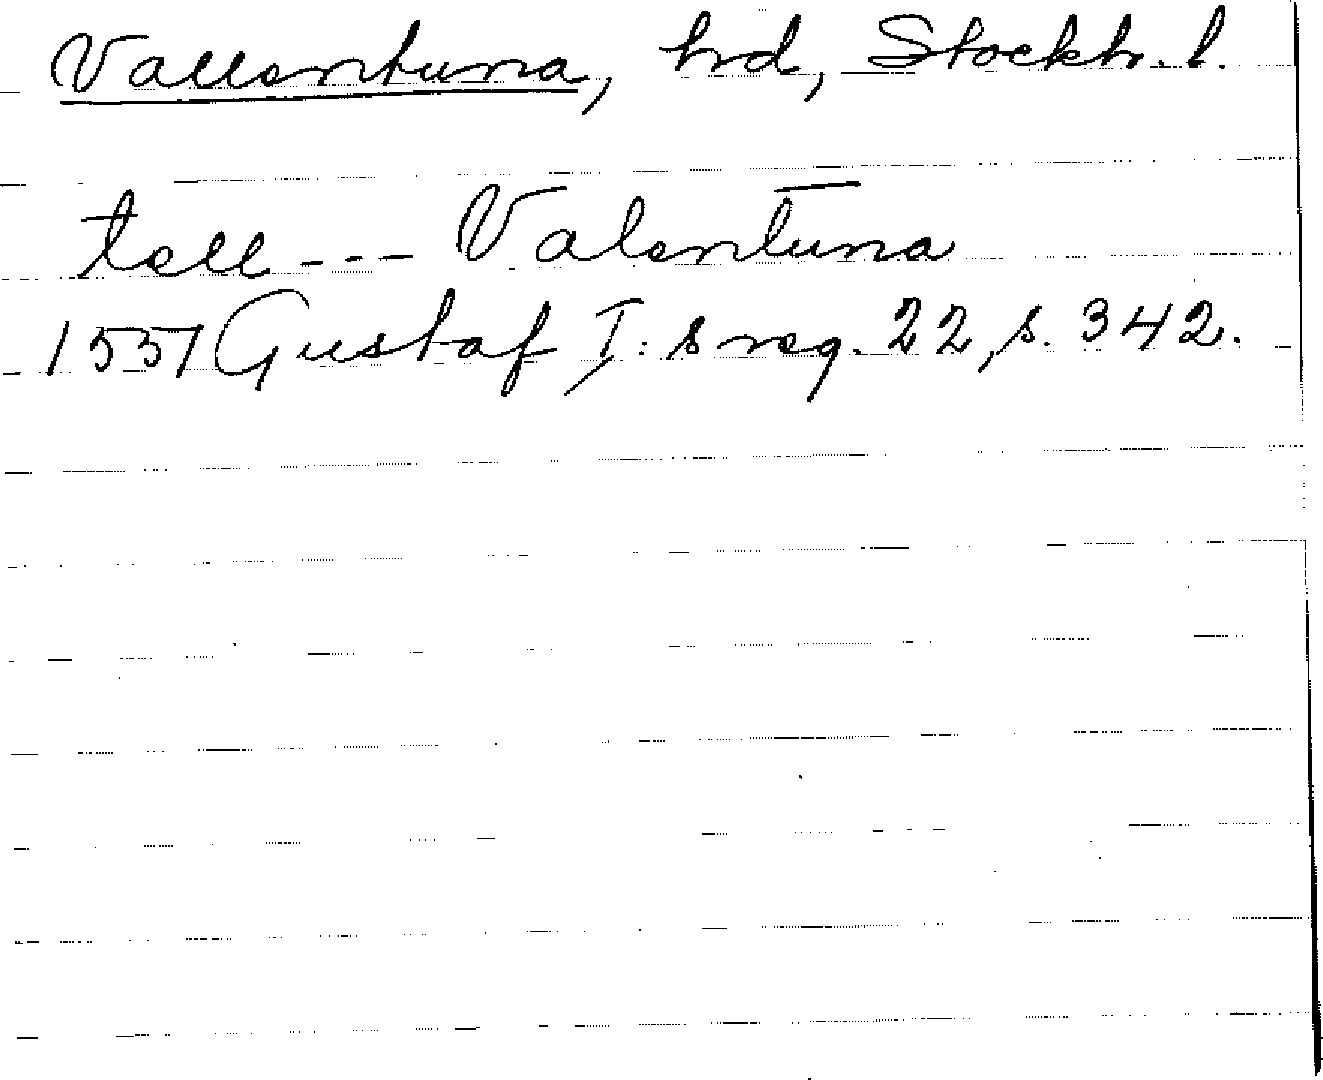 Vallentuna, hd, Stockh. l.
tell --- Valentuna
1551 Gustaf I:s reg. 22, s. 342.